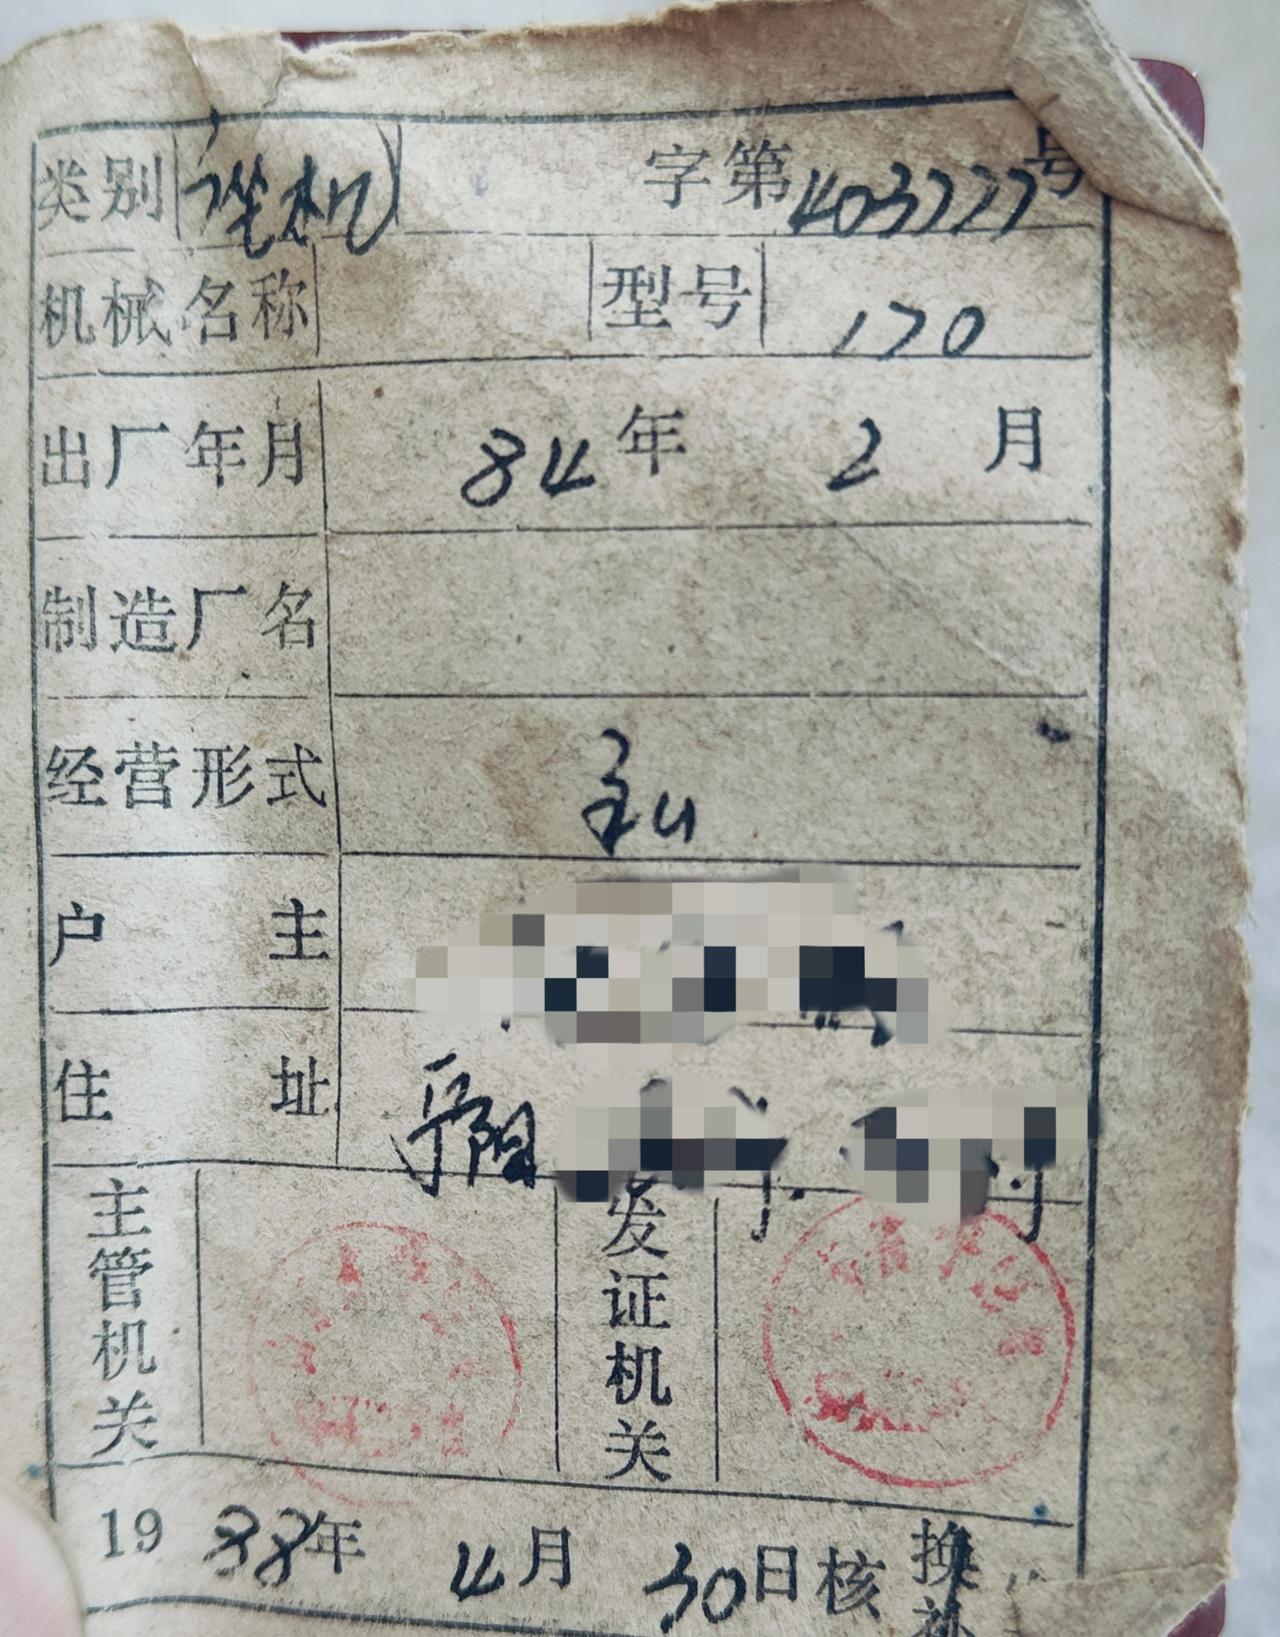 类别 字第403777号
机械名称 型号 170
出厂年月 84年 2月
制造厂名
经营形式
户主
住址 阳
主管机关 发证机关
1988年 4月 30日核 换补